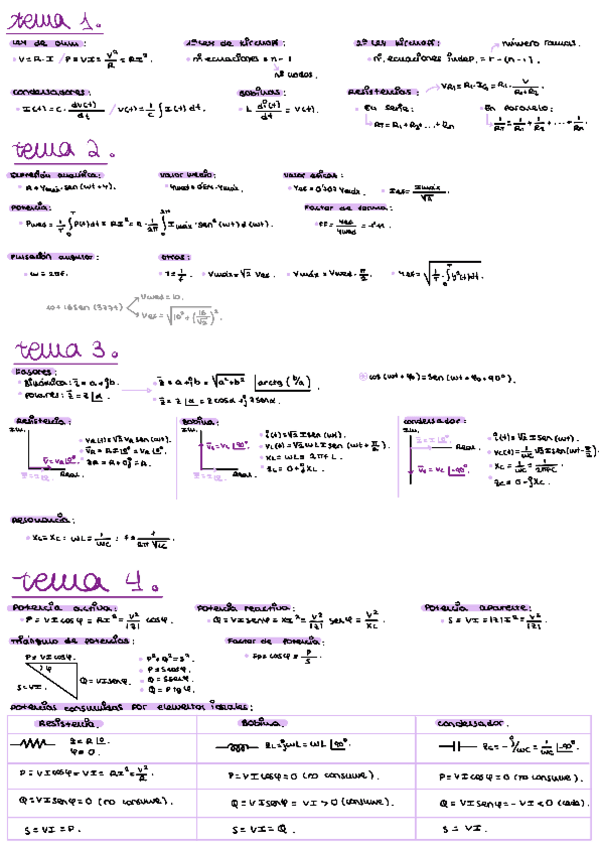 tema 1.
Ley de Ohm:
V = R·I / P = VI = V²/R = RI².
1ª Ley de Kirchoff:
nº ecuaciones = n - 1
nº nodos.
2ª Ley Kirchoff:
número ramas.
nº ecuaciones indep. = r - (n-1).
Condensadores:
I(t) = C · dV(t)/dt / V(t) = 1/C ∫ I(t) dt.
Bobinas:
L di(t)/dt = V(t).
Resistencias:
VR1 = R1·IG = R1· V/(R1+R2)
En serie:
RT = R1 + R2 + ... + Rn
En paralelo:
1/RT = 1/R1 + 1/R2 + ... + 1/Rn
tema 2.
Expresión analítica:
Valor medio:
Valor eficaz:
Ief = Imáx/√2.
Potencia:
Factor de forma:
Pulsación angular:
ω = 2πf.
Otras:
T = 1/f.
Vmáx = √2 Vef.
Vmáx = Vmed · π/2.
10 + 18 sen (377t)
Vmed = 10.
Vef = √(10² + (18/√2)²).
tema 3.
Fasores:
Binómica: z̄ = a + jb.
Polares: z̄ = z∠α
z̄ = a + jb = √(a²+b²) ∠arctg (b/a)
z̄ = z∠α = z cosα + j z senα.
cos (ωt + φ₀) = sen (ωt + φ₀ + 90°).
Resistencia:
Im.
Real.
vR(t) = √2 VR sen (ωt).
V̄R = RI∠0° = VR∠0°.
z̄R = R + 0j = R.
Bobina:
Im.
V̄L = VL∠90°
Real.
i(t) = √2 I sen (ωt).
vL(t) = √2 ωL I sen (ωt + π/2)
XL = ωL = 2πfL
z̄L = 0 + jXL
Condensador:
Im.
Real.
V̄C = VC∠-90°
i(t) = √2 I sen (ωt).
vC(t) = 1/ωC √2 I sen (ωt - π/2)
XC = 1/ωC = 1/2πfC.
z̄C = 0 - jXC.
Resonancia:
XL = XC : ωL = 1/ωC : f = 1/(2π√LC).
tema 4.
Potencia activa:
P = VI cosφ = RI² = V²/|z| cosφ.
Potencia reactiva:
Q = VI senφ = XI² = V²/|z| senφ = V²/XL
Potencia aparente:
S = VI = |z|I² = V²/|z|
Triángulo de potencias:
P = VI cosφ.
φ
S = VI.
Q = VI senφ.
P² + Q² = S².
P = S cosφ.
Q = S senφ.
Q = P tgφ.
Factor de potencia:
Fp = cosφ = P/S.
Potencias consumidas por elementos ideales:
Resistencia. Bobina. Condensador.
z̄ = R∠0.
φ = 0.
z̄L = jωL = ωL∠90°.
z̄C = -j/ωC = 1/ωC∠-90°.
P = VI cosφ = VI = RI² = V²/R. P = VI cosφ = 0 (no consume). P = VI cosφ = 0 (no consume).
Q = VI senφ = 0 (no consume). Q = VI senφ = VI > 0 (consume). Q = VI senφ = - VI < 0 (cede).
S = VI = P. S = VI = Q. S = VI.